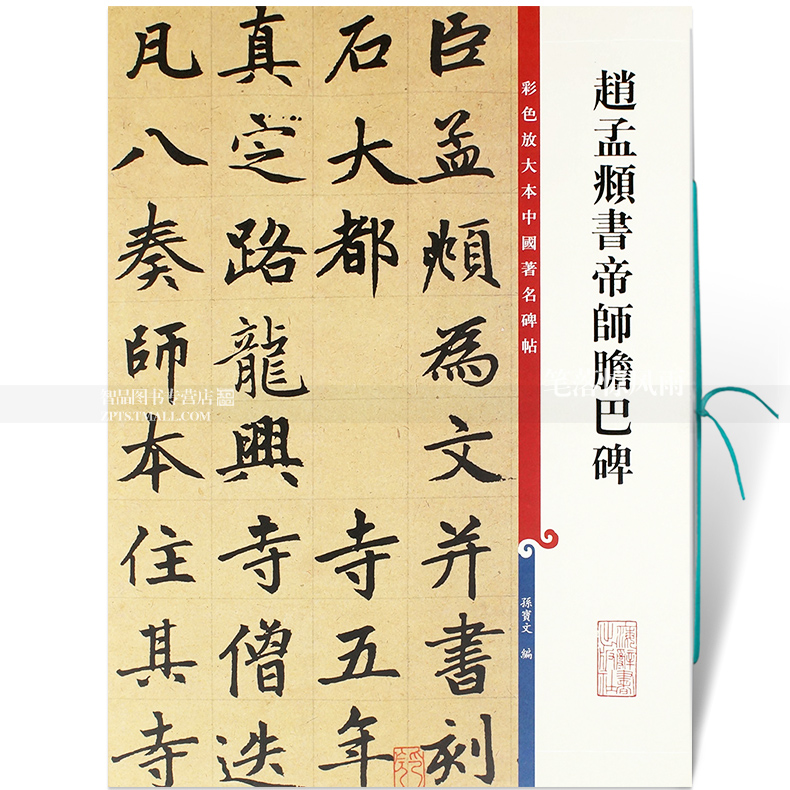 趙孟頫書帝師膽巴碑
彩色放大本中國著名碑帖
孫寶文 編
臣孟頫為文并書刻
石大都 寺五年
真定路龍興寺僧迭
凡八奏師本住其寺
智品图书专营店
ZPTS.TMALL.COM
笔落惊风雨